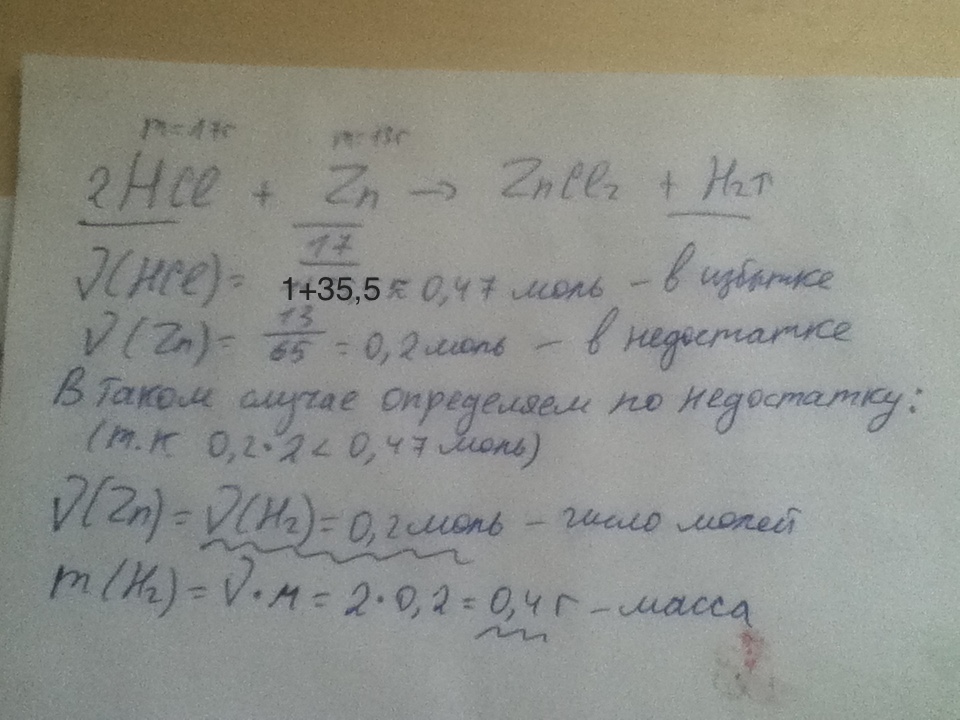 m=17г m=13г
2HCl + Zn → ZnCl₂ + H₂↑
ν(HCl) = 17 / 1+35,5 ≈ 0,47 моль – в избытке
ν(Zn) = 13 / 65 = 0,2 моль – в недостатке
В таком случае определяем по недостатку:
(т.к 0,2·2 < 0,47 моль)
ν(Zn) = ν(H₂) = 0,2 моль – число молей
m(H₂) = ν·м = 2·0,2 = 0,4 г – масса